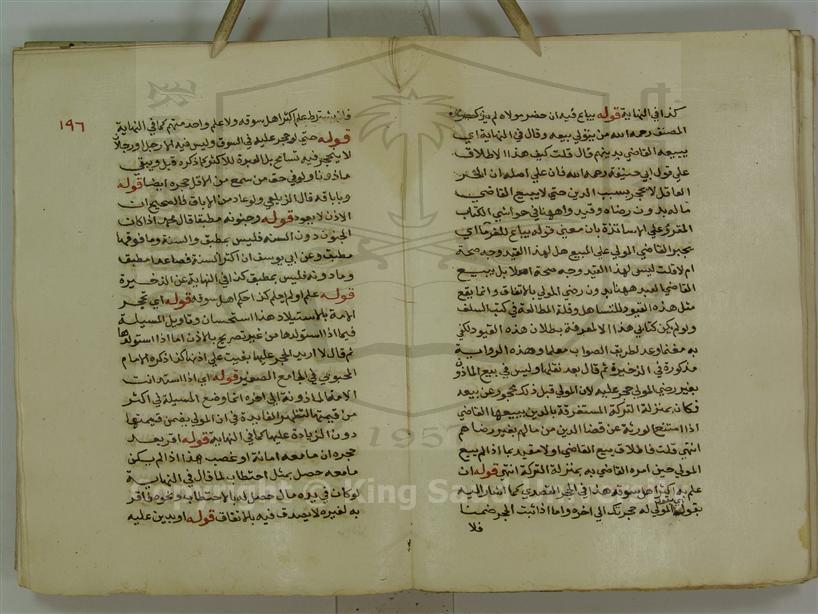 كذا في النهاية قوله يباع فيه ان حضر مولاه لم يذكر
المصنف رحمه الله من يتولى بيعه وقال في النهاية اي
يبيعه القاضي بدينهم قال قلت كيف هذا الاطلاق
على قول ابي حنيفة رحمه الله فان على اصله ان الحر
العاقل لا يحجر بسبب الدين حتى لا يبيع القاضي
ماله بدون رضاه وقيد واههنا في حواشي الكتاب
المقروء على الاساتذة بان معنى قوله يباع للغرماء اي
يجبر القاضي المولى على المبيع هل لهذا القيد وجه صحة
ام لا قلت ليس لهذا القيد وجه صحة اصلا بل يبيع
القاضي العبد ههنا بدون رضى المولى بالاتفاق وانما يقع
مثل هذه القيود للتساهل وقلة المطالعة في كتب السلف
ولو لم يكن كتابي هذا الا لمعرفة بطلان هذه القيود لكفى
به مغنما وعد لطريق الصواب معلما وهذه الرواية
مذكورة في الذخيرة ثم قال بعد نقلها وليس في بيع الماذون
بغير رضى المولى حجر عليه لان المولى قبل ذلك محجور عن بيعه
فكان بمنزلة التركة المستغرقة بالدين يبيعها القاضي
اذا امتنع الورثة عن قضا الدين من مالهم بغير رضاهم
انتهى قلت فاطلاق بيع القاضي اولا مقيد بما اذا لم يبع
المولى حين امره القاضي به بمنزلة التركة انتهى قوله ان
علم به اكثر اهل سوقه هذا في الحجر القصدي كما اشار اليه
بقوله المولى له حجرتك الى اخره واما اذا ثبت الحجر ضمنا
فلا
١٩٦
فلا يشترط علم اكثر اهل سوقه ولا علم واحد منهم كما في النهاية
قوله حتى لو حجر عليه في السوق وليس فيه الا رجل او رجلان
لا ينحجر فيه تسامح بل العبرة للاكثر كما ذكره قبل ويبقى
ماذونا ولو في حق من سمع من الاقل حجره ايضا قوله
وباباقه قال الزيلعي ولو عاد من الاباق فالصحيح ان
الاذن لا يعود قوله وجنونه مطبقا قال محمد اذا كان
الجنون دون السنة فليس بمطبق والسنة وما فوقها
مطبق وعن ابي يوسف ان اكثر السنة فصاعدا مطبق
وما دونه فليس بمطبق كذا في النهاية عن الذخيرة
قوله علم او لم يعلم كذا حكم اهل سوقه قوله اي تحجر
الامة بالاستيلاد هذا استحسان وتاويل المسيلة
فيما اذا استولدها من غير تصريح بالاذن اما اذا استولدها
ثم قال لا اريد الحجر عليها بقيت على اذنها كذا ذكره الامام
المحبوبي في الجامع الصغير قوله اي اذا استدانت
الامة الماذونة الى اخره انما وضع المسيلة في اكثر
من قيمتها لتظهر الفايدة في ان المولى يضمن قيمتها
دون الزيادة عليها كما في النهاية قوله اقر بعد
حجره ان ما معه امانة او غصب هذا اذا لم يكن
ما معه حصل بمثل احتطاب لما قال في النهاية
لو كان في يده مال حصل له بالاحتطاب ونحوه فاقر
به لغيره لا يصدق فيه بالاتفاق قوله او يبين عليه